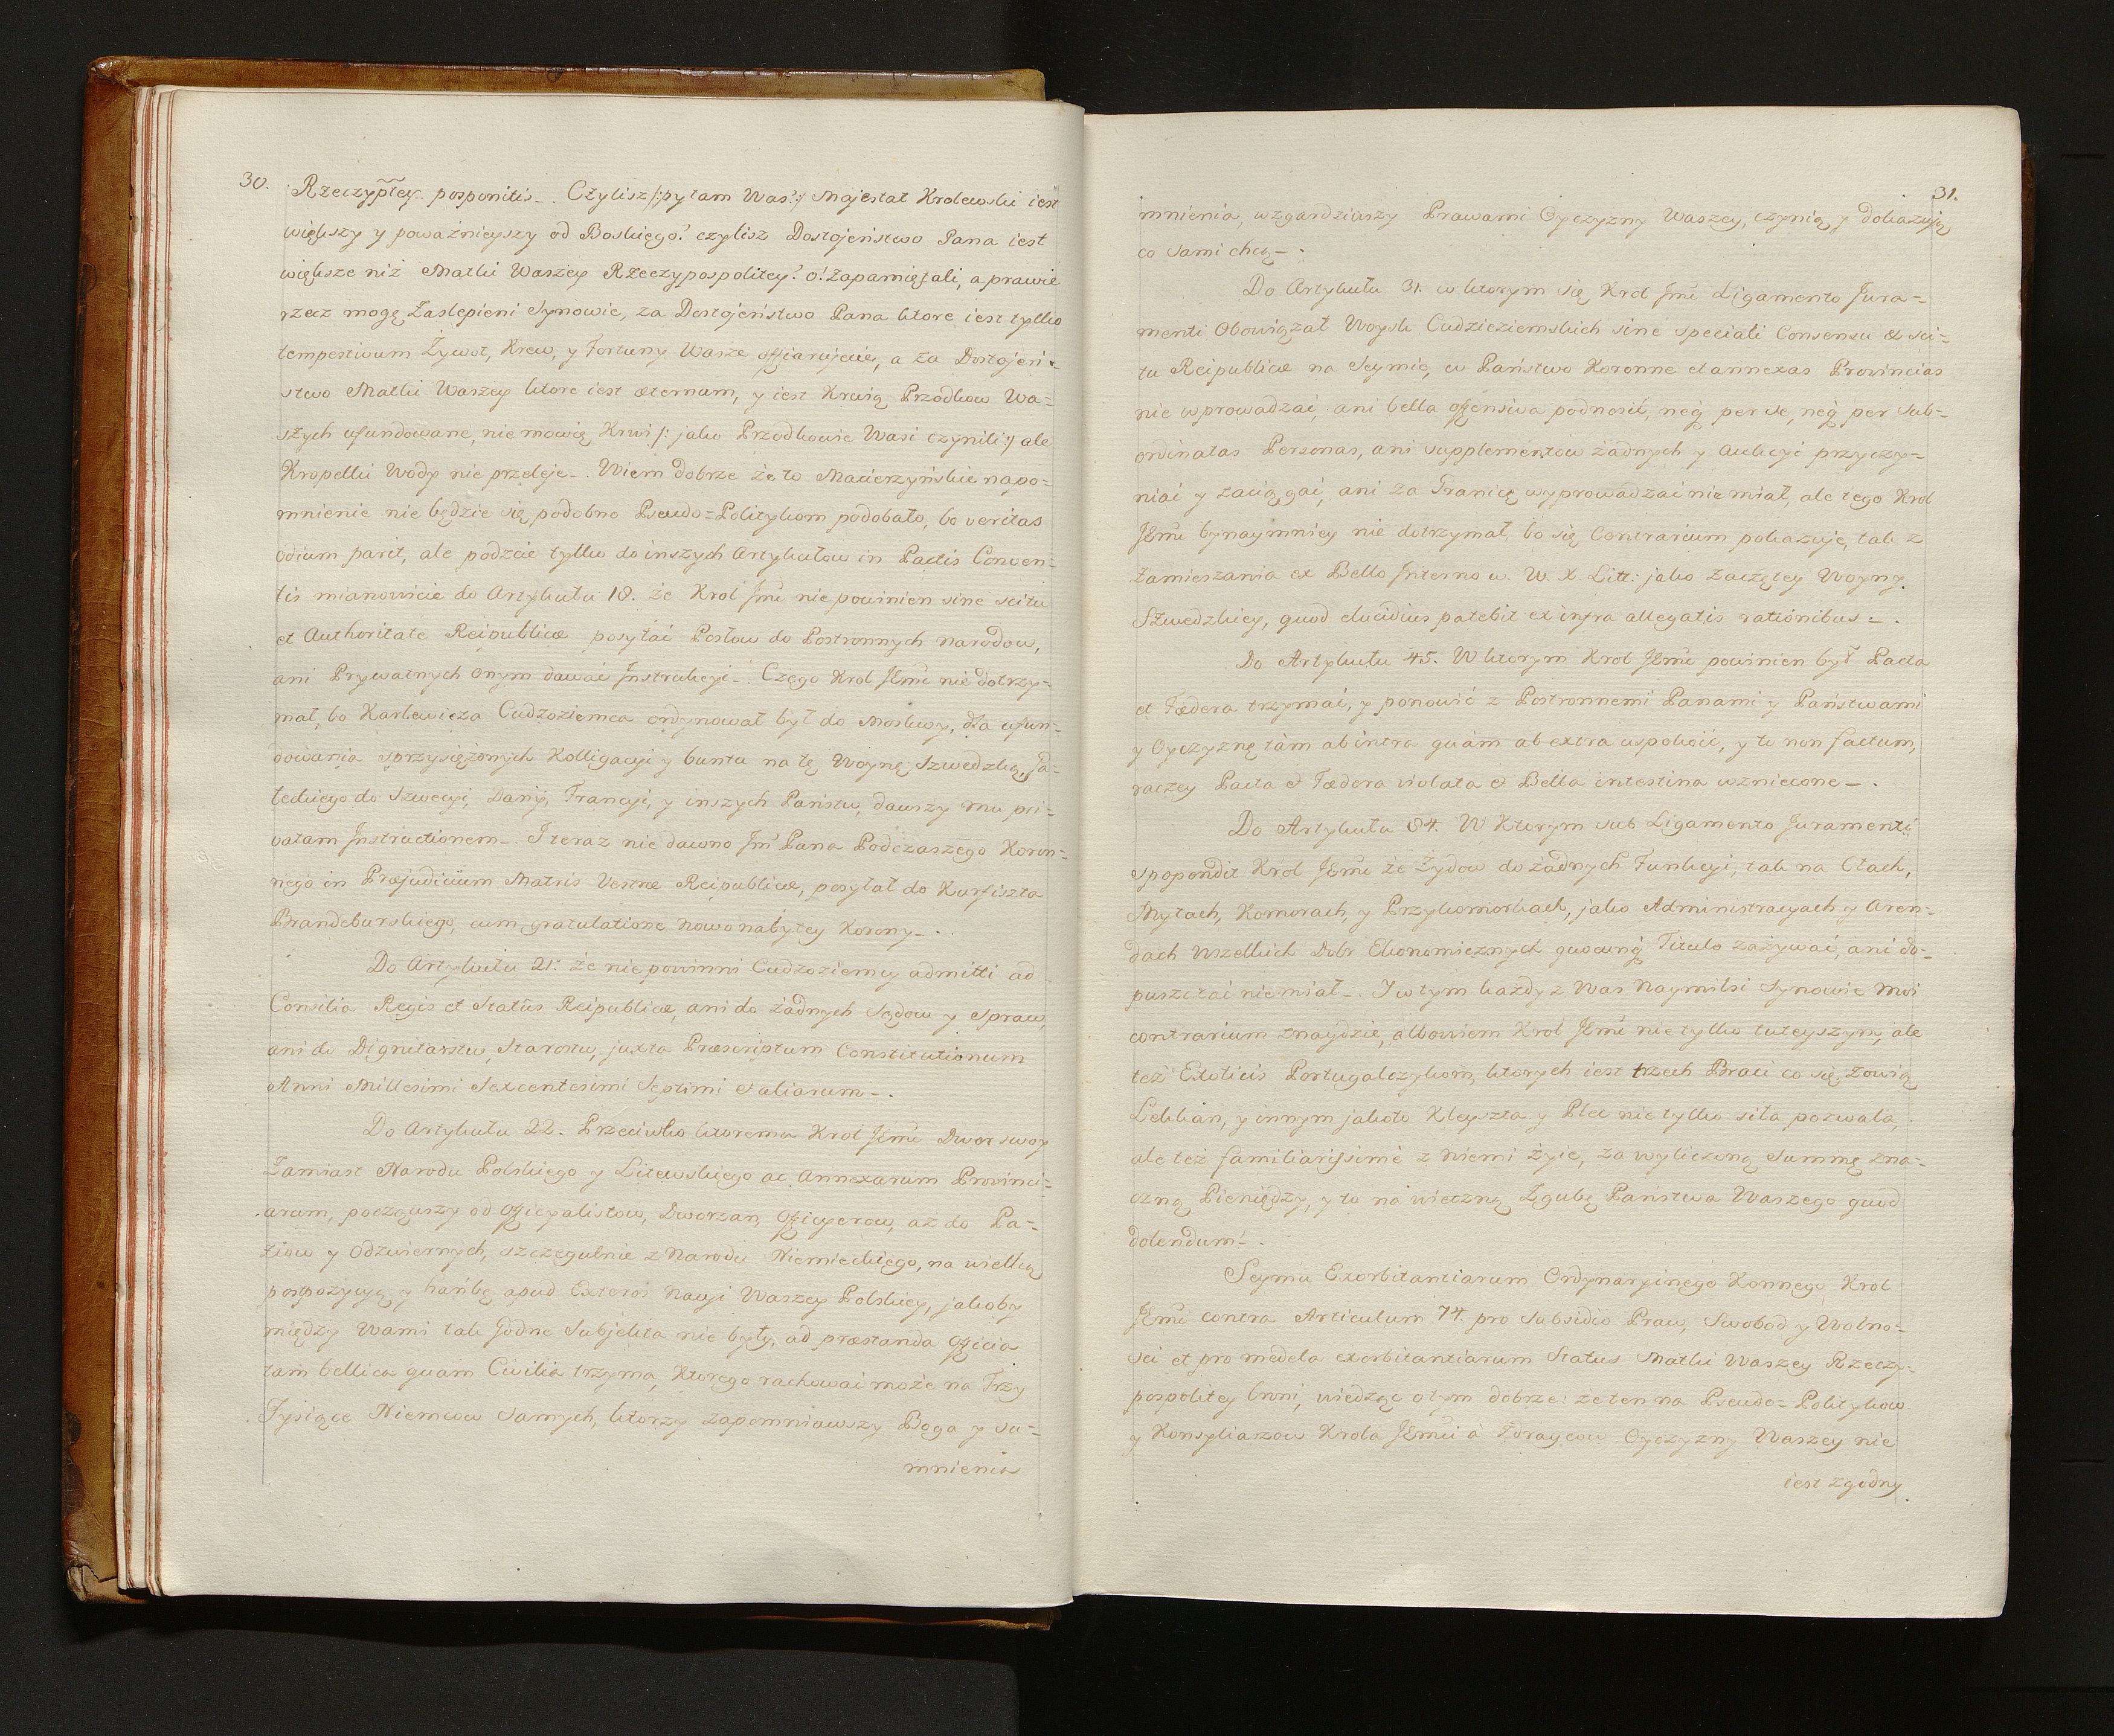 30.
Rzeczyptey. posponitis_. Czylisz /:pytam Was?:/ Majestat Krolewski iest
większy y poważnieyszy od Boskiego? czylisz Dostojeństwo Pana iest
większe niż Matki Waszey Rzeczypospolitey? o! Zapamiętali, a prawie
rzecz mogę Zaslepieni Synowie, za Dostojeństwo Pana ktore iest tylko
tempestivum Żywot, Krew, y Fortuny Wasze offiarujecie, a za Dostojeń-
stwo Matki Waszey ktore iest æternam, y iest Krwią Przodkow Wa=
szych ufundowane, nie mowię Krwi /: jako Przodkowie Wasi czynili:/ ale
Kropelki Wody nie przeleje_. Wiem dobrze że to Macierzyńskie napo=
mnienie nie będzie się podobno Pseudo=Politykom podobało, bo veritas
odium parit, ale podzcie tylko do inszych Artykułow in Pactis Conven=
tis mianowicie do Artykułu 18. że Krol Jmć nie powinien sine scitu
et Authoritate Reipublicæ posyłać Posłow do Postronnych narodow,
ani Prywatnych onym dawać Instrukcyi_. Czego Krol JEmć nie dotrzy=
mał, bo Karlewicza Cudzoziemca ordynował był do Moskwy, dla ufun=
dowania sprzysiężonych Kolligacyi y buntu na tę Woynę Szwedzką, Ja=
leckiego do Szwecyi, Danij, Francyi, y inszych Państw, dawszy mu pri=
vatam Instructionem_. I teraz nie dawno Jm̃ Pana Podczaszego Koron=
nego in Præjudicium Matris Vestræ Reipublicæ, posyłał do Kurfiszta
Brandeburskiego, cum gratulatione nowo nabytey Korony_.
Do Artykułu 21: że nie powinni Cudzoziemcy admitti ad
Consilia Regis et Statûs Reipublicæ, ani do żadnych Sądow y Spraw,
ani do Dignitarstw, Starostw, juxta Præscriptum Constitutionum
Anni Millesimi Sexcentesimi Septimi & aliarum_.
Do Artykułu 22. Przeciwko ktoremu Krol JEmć Dwor swoy
Zamiast Narodu Polskiego y Litewskiego ac Annexarum Provinci=
arum, począwszy od Officyalistow, Dworzan, Officyerow, aż do Pa=
ziow y Odzwiernych, szczegulnie z Narodu Niemieckiego, na wielką
postpozycyą y hańbę apud Exteros Nacyi Waszey Polskiey, jakoby
między Wami tak godne Subjekta nie były, ad præstanda Officia
tam bellica quam Civilia trzyma, Ktorego rachować może na Trzy
Tysiące Niemcow samych, ktorzy zapomniawszy Boga y su=
mnienia
31.
mnienia, wzgardziwszy Prawami Oyczyzny Waszey, czynią y dokazują
co sami chcą_.
Do Artykułu 31. w ktorym się Krol Jmć Ligamento Jura=
menti Obowiązał Woysk Cudzieziemskich sine speciali Consensu & sci=
tu Reipublicæ na Seymie, w Państwo Koronne et annexas Provincias
nie wprowadzać, ani bella offensiva podnosić, neq; per se, neq; per sub=
ordinatas Personas, ani supplementow żadnych y aukcyi przyczy=
niać y zaciągać, ani za Granicę wyprowadzać nie miał, ale tego Krol
JEmć bynaymniey nie dotrzymał, bo się Contrarium pokazuje, tak z
Zamieszania ex Bello Interno w. W. X. Litt: jako Zaczętey Woyny
Szwedzkiey, quod elucidius patebit ex infra allegatis rationibus_.
Do Artykułu 45. W ktorym Krol JEmć powinien był Pacta
et Fædera trzymać, y ponowić z Postronnemi Panami y Państwami
y Oyczyznę tàm ab intra quàm ab extra uspokoić, y to non factum,
raczey Pacta & Fædera violata & Bella intestina wzniecone_.
Do Artykułu 84. W Ktorym sub Ligamento Juramenti
spopondit Krol JEmć że Żydow do żadnych Funkcyi, tak na Cłach,
Mytach, Komorach, y Przykomorkach, jako Administracyach y Aren=
dach wszelkich Dobr Ekonomicznych quocunq; Titulo zażywać, ani do=
puszczać nie miał_. I w tym każdy z Was Naymilsi Synowie Moi
contrarium znaydzie, albowiem Krol JEmć nie tylko tuteyszym, ale
też Exoticis Portugalczykom, ktorych iest trzech Braci co się zowią
Lehhan, y innym jakoto Kleyszta y Plec nie tylko siła pozwala,
ale też familiarissimè z niemi żyie, za wyliczoną Summę zna=
czną Pieniędzy, y to na wieczną Zgubę Państwa Waszego quod
dolendum_.
Seymu Exorbitantiarum Ordynaryinego Konnego Krol
JEmć contra Articulum 74. pro subsidio Praw, Swobod y Wolno=
sci et pro medela exorbitantiarum Status Matki Waszey Rzeczy=
pospolitey broni, wiedząc o tym dobrze: że ten na Pseudo=Politykow
y Konsyliarzow Krola JEmći à Zdraycow Oyczyzny Waszey nie
iest zgodny